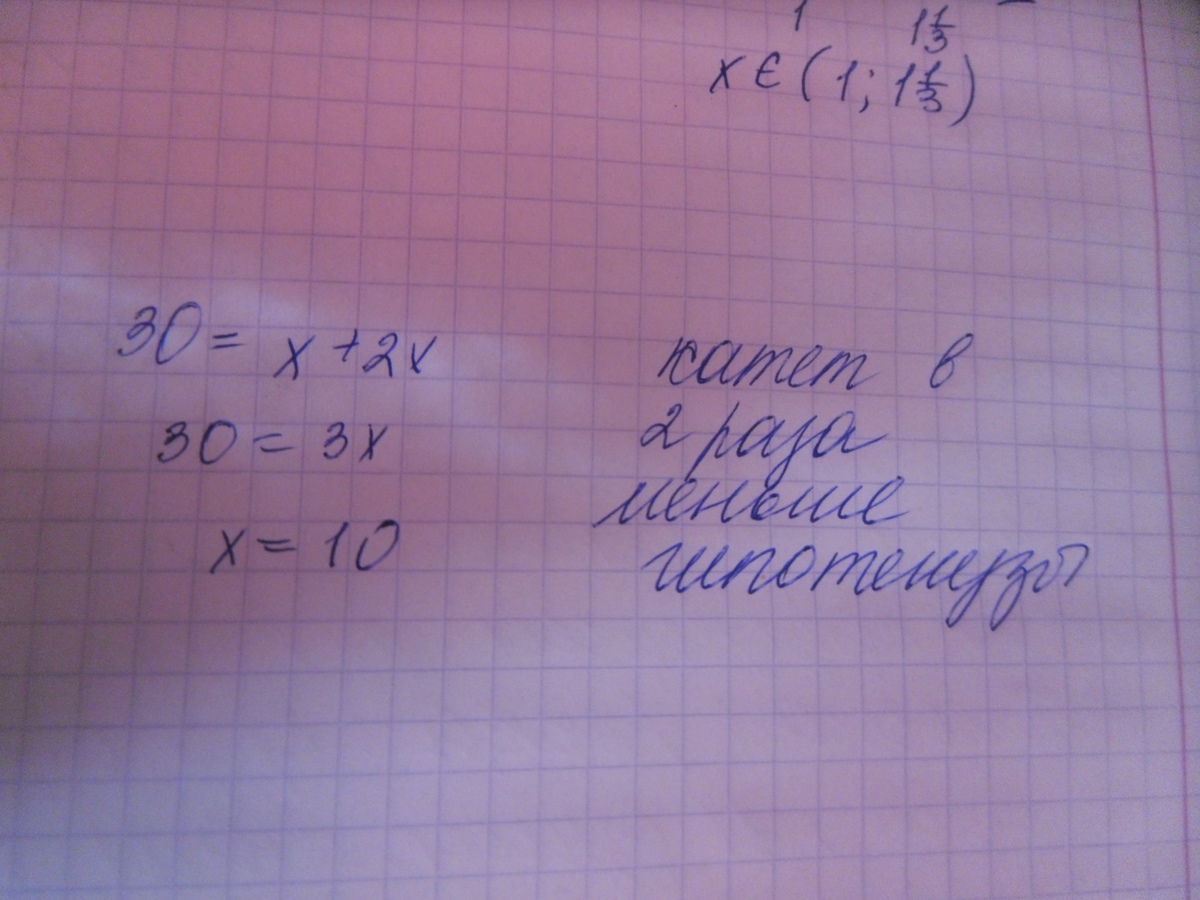 1 1 1/3
x ∈ (1; 1 1/3)
30 = x + 2x
30 = 3x
x = 10
катет в
2 раза
меньше
гипотенузы